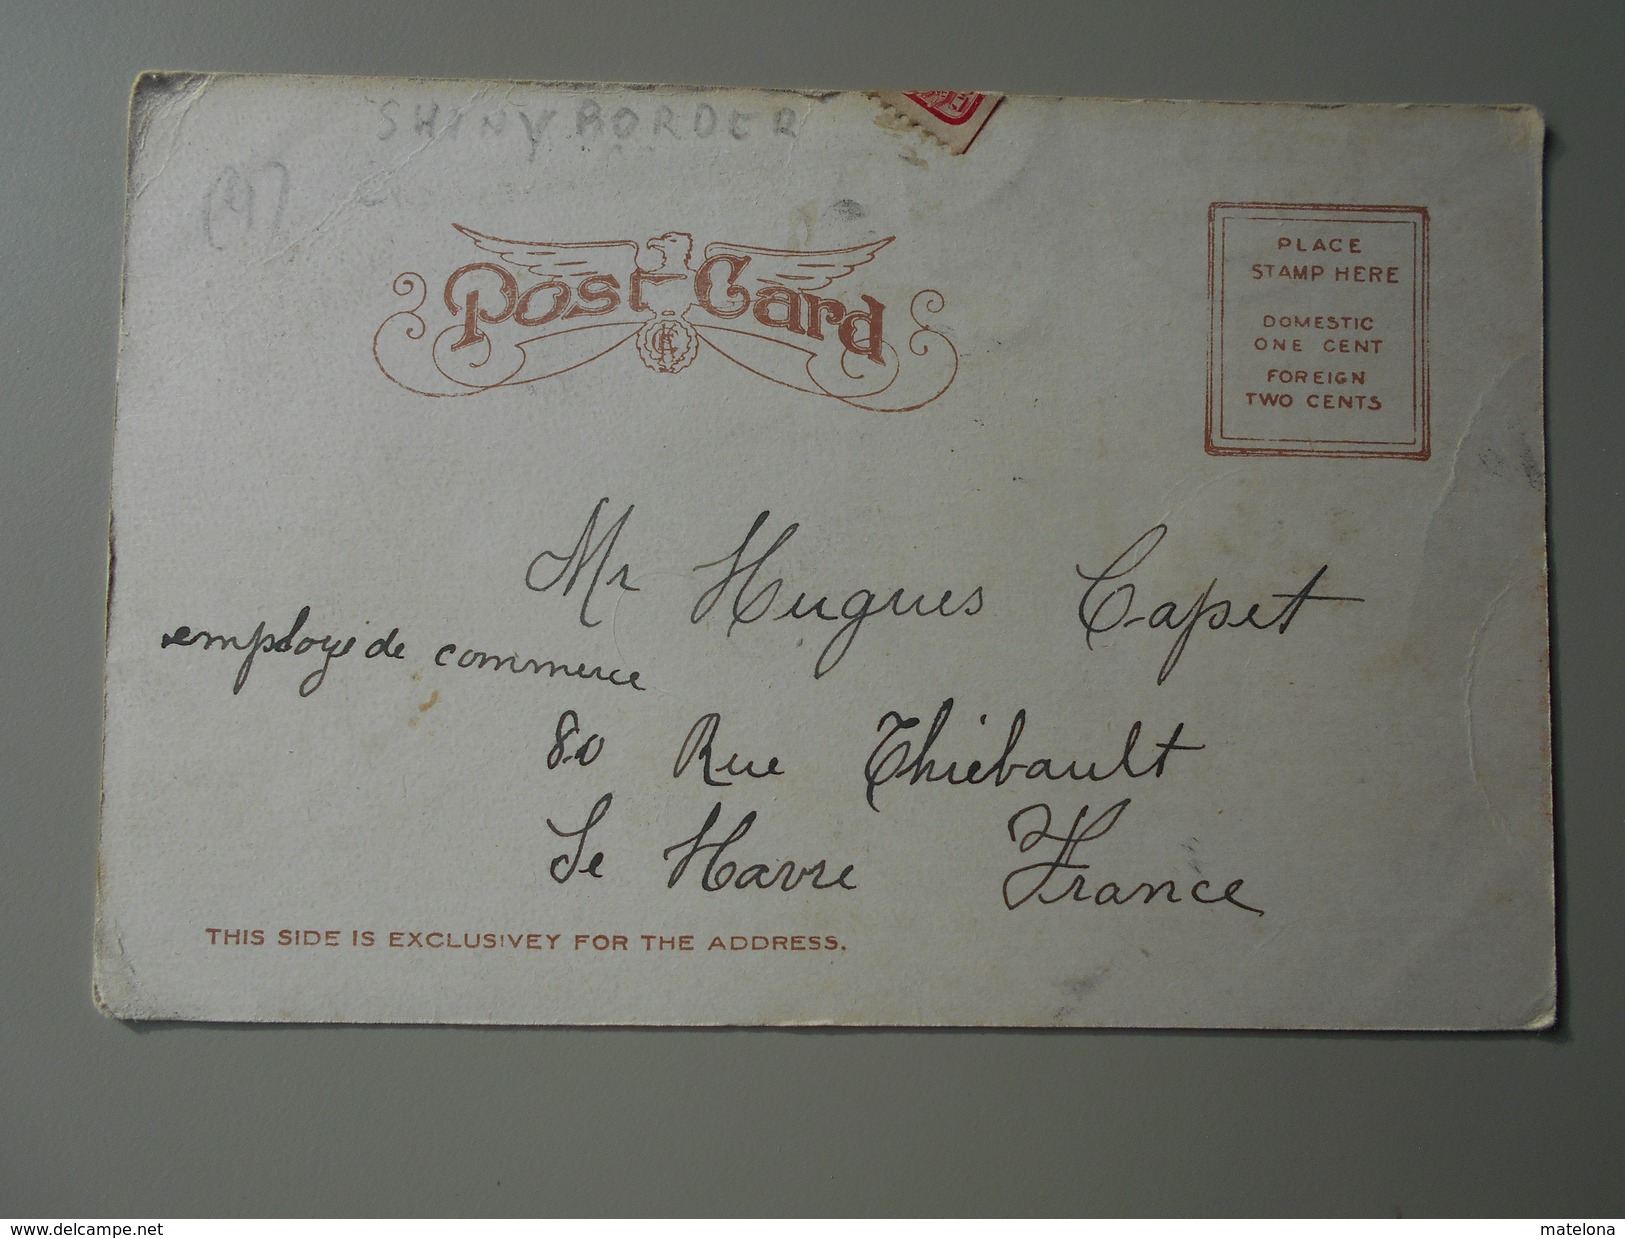 SHINY BORDER
(4)
Post Card
PLACE
STAMP HERE
DOMESTIC
ONE CENT
FOREIGN
TWO CENTS
Mr Hugues Capet
employé de commerce
80 Rue Thiébault
Le Havre France
THIS SIDE IS EXCLUSIVEY FOR THE ADDRESS.
www.delcampe.net
matelona